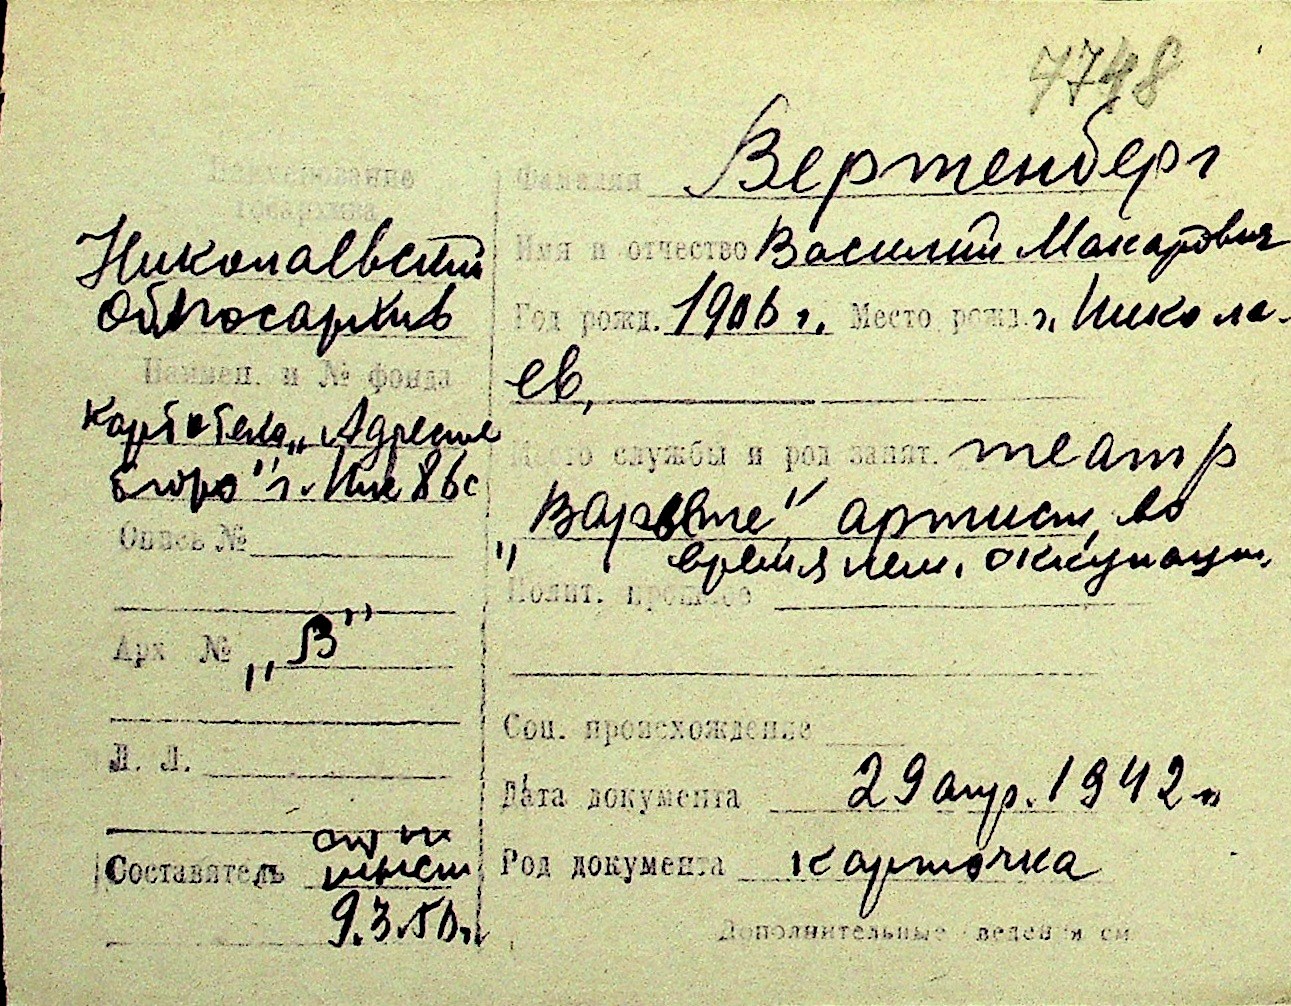 7748
Наименование
госархива
Николаевский
Облгосархив
Наимен. и № фонда
Картотека „Адресное
бюро" г.
Опись №
Арх. № „В"
Л. Л.
Составитель
9.3.50 г.
Фамилия Вертенберг
Имя и отчество Василий Макарович
Год рожд. 1906 г. Место рожд. г. Никола-
ев,
Место службы и род занят. театр
„Варьете" артист, во
время нем. оккупации.
Полит. прошлое
Соц. происхождение
Дата документа 29 апр. 1942 г.
Род документа карточка
Дополнительные сведения см.